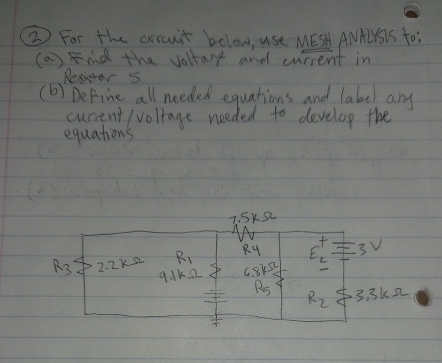 ② For the circuit below, use MESH ANALYSIS to:
(a) Find the voltage and current in
Resistor 5
(b) Define all needed equations and label any
current/voltage needed to develop the
equations
7.5kΩ
R4
R3 2.2kΩ
R1
9.1kΩ
6.8kΩ
R5
+
E2 3V
-
R2 3.3kΩ